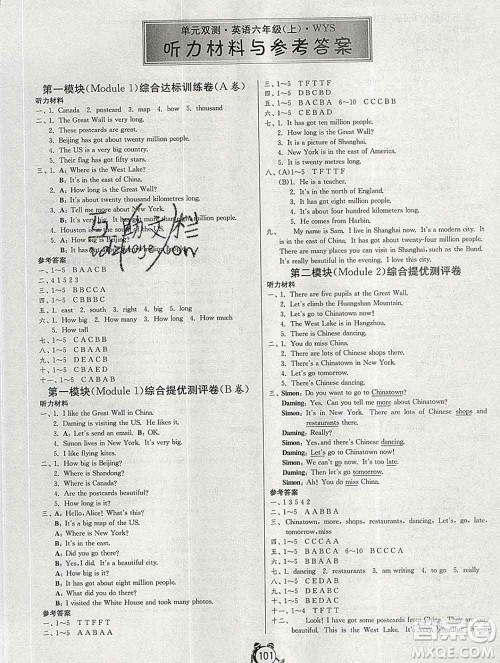 单元双测·英语六年级(上)·WYS
听力材料与参考答案
第一模块(Module 1)综合达标训练卷(A卷)
听力材料
一、1. Canada 2. postcard 3. map 4. how 5. thousand
二、1. The Great Wall is very long.
2. These postcards are great.
3. Beijing has got about twenty million people.
4. The US is a very big country.
5. Their flag has got fifty stars.
三、1. A: Where is the West Lake?
B: It's in the east of China.
2. A: How long is the Great Wall?
3. A: Tell me more about New York.
5. A: How big is Beijing?
参考答案
一、1~5 BAACB
二、4 1 5 2 3
三、1~5 BCCAA
四、1~5 CBBBC
五、1. east 2. south 3. right 4. big 5. long
六、1. How big 2. How long 3. How many 4. How much
5. How tall
七、1~5 CACBB
八、1~5 CBAAA
九、1~5 DEACB
十、1~5 CBAED
十一、1~5 FABAB
第一模块(Module 1)综合提优测评卷(B卷)
听力材料
一、1. I like the Great Wall in China.
2. Daming is visiting the US. He likes it.
3. A: Let's send an email. B: OK.
4. Simon likes New York.
5. I like flying kites.
二、1. How big is Beijing?
2. Where is Shandong?
3. Where is Canada?
4. Are the postcards beautiful?
5. How long is it?
三、1. A: Hello, Alice! What's this?
B: It's a big map of the US.
2. A: Was it in the east of China?
B: No, it wasn't.
3. A: Did you go there?
B: Yes, I did.
4. A: How big is Beijing?
B: It has got about eight million people.
5. A: What did you do there?
B: I visited the White House and took many photos.
参考答案
一、1~5 ABBBA
二、1~5 ABABB
三、1~5 TFTTF
四、1~5 DBCBD
五、1~5 BACBA 6~10 BBCCC
六、1~5 CEBAD
七、1. It has got ten million people.
2. How long is the Great Wall?
3. It is a picture of Shanghai.
4. New York is in the east of America.
5. It is twenty metres long.
八、(A) 1~5 TFTFF
(B) 1. It's in the north of England.
2. It's in the east of China.
3. He lives in London.
4. 8 million people.
5. He comes from Harbin.
九、My name is Sam. I live in Shenyang. It is in the
northeast of China. It is very big and beautiful.
There are many places to visit and many delicious
foods to eat. I love Shenyang.
第二模块(Module 2)综合提优测评卷
听力材料
一、1. There are five pupils in our classroom.
2. Let's climb the Huangshan Mountain.
3. Let's go to Chinatown now!
4. The West Lake is in Hangzhou.
5. These are your stamps.
二、1. You do miss China.
2. There are Chinese shops.
3. Let's go to Chinatown!
4. I'm sending an email to my family.
5. There are lots of beautiful lakes in China.
三、Simon: Do you want to go to Chinatown?
Daming: Yes. Can you tell me more about Chinatown?
Simon: There are lots of Chinese shops and
restaurants there.
Daming: Really?
Simon: Yes. And there's Chinese dancing, too!
Daming: That's fantastic! Let's go to Chinatown now!
Simon: You do miss China. Don't worry. We can go
tomorrow.
Daming: Great! Then let's go tomorrow.
参考答案
一、1 3 5 4 2
二、1~5 AABBA
三、Chinatown, more, shops, restaurants, dancing, Let's, go,
四、1~5 CDABE
五、1~5 BAABA 6~10 ABBCC
六、1. dancing 2. sending 3. miss 4. visited 5. is
七、1~5 CEBAD
八、1~5 DBAEC
九、1~5 ABBAB
十、(一) 1~5 BCCAA (二) 1~5 FTTFT
101